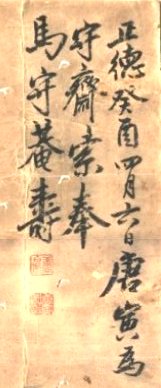 正德癸酉四月六日唐寅為
守齋索奉
馬守菴壽